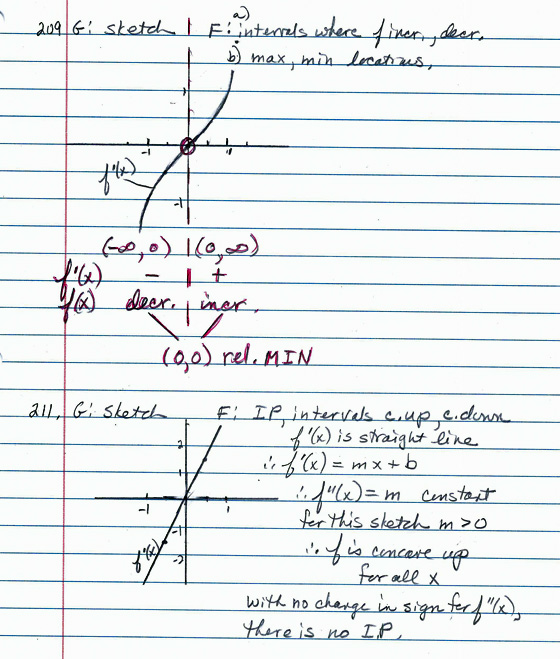 209 G: sketch | F: a) intervals where f incr., decr.
b) max, min locations,
1
-1 1
f'(x)
-1
(-∞, 0) | (0, ∞)
f'(x) - | +
f(x) decr. | incr.
(0,0) rel. MIN
211. G: Sketch F: IP, intervals c.up, c.down
f'(x) is straight line
2
∴ f'(x) = mx + b
1
∴ f"(x) = m constant
-1 1
for this sketch m > 0
-1
∴ f is concave up
f'(x) -2
for all x
with no change in sign for f"(x),
there is no I.P.